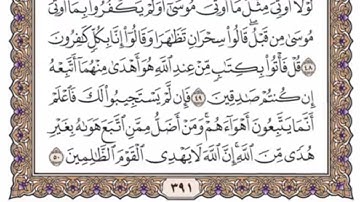 لَوْلَآ أُوتِىَ مِثْلَ مَآ أُوتِىَ مُوسَىٰٓ أَوَلَمْ يَكْفُرُوا۟ بِمَآ أُوتِىَ
مُوسَىٰ مِن قَبْلُ ۖ قَالُوا۟ سِحْرَانِ تَظَٰهَرَا وَقَالُوٓا۟ إِنَّا بِكُلٍّ كَٰفِرُونَ
٤٨ قُلْ فَأْتُوا۟ بِكِتَٰبٍ مِّنْ عِندِ ٱللَّهِ هُوَ أَهْدَىٰ مِنْهُمَآ أَتَّبِعْهُ
إِن كُنتُمْ صَٰدِقِينَ ٤٩ فَإِن لَّمْ يَسْتَجِيبُوا۟ لَكَ فَٱعْلَمْ
أَنَّمَا يَتَّبِعُونَ أَهْوَآءَهُمْ ۚ وَمَنْ أَضَلُّ مِمَّنِ ٱتَّبَعَ هَوَىٰهُ بِغَيْرِ
هُدًى مِّنَ ٱللَّهِ ۚ إِنَّ ٱللَّهَ لَا يَهْدِى ٱلْقَوْمَ ٱلظَّٰلِمِينَ ٥٠
٣٩١